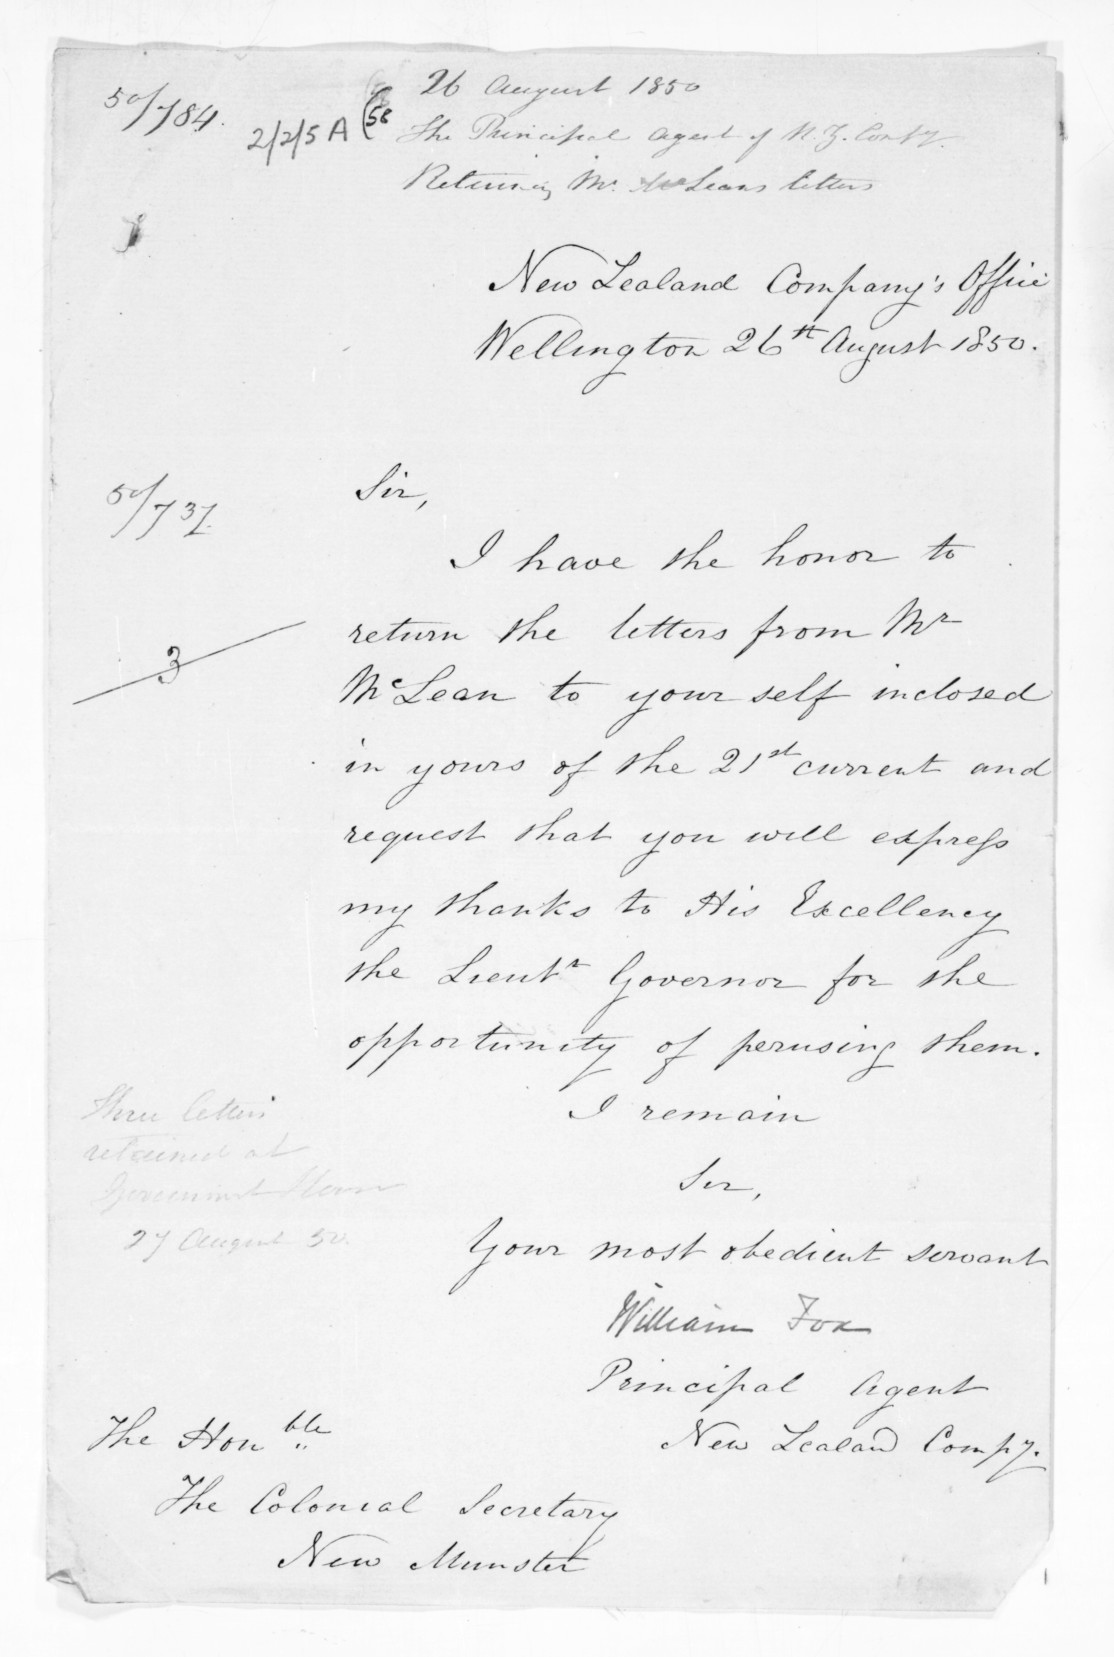 50/784.
2/2/5 A (58
26 August 1850
The Principal Agent of N. Z. Compy.
Returning Mr. McLeans letters
New Zealand Company's Office
Wellington 26th August 1850.
50/737.
3
Sir,
I have the honor to
return the letters from Mr
McLean to your self inclosed
in yours of the 21st current and
request that you will express
my thanks to His Excellency
the Lieutt Governor for the
opportunity of perusing them.
I remain
Sir,
Your most obedient servant
William Fox
Principal Agent
New Zealand Compy.
Three letters
retained at
Government House
27 August 50.
The Honble
The Colonial Secretary
New Munster